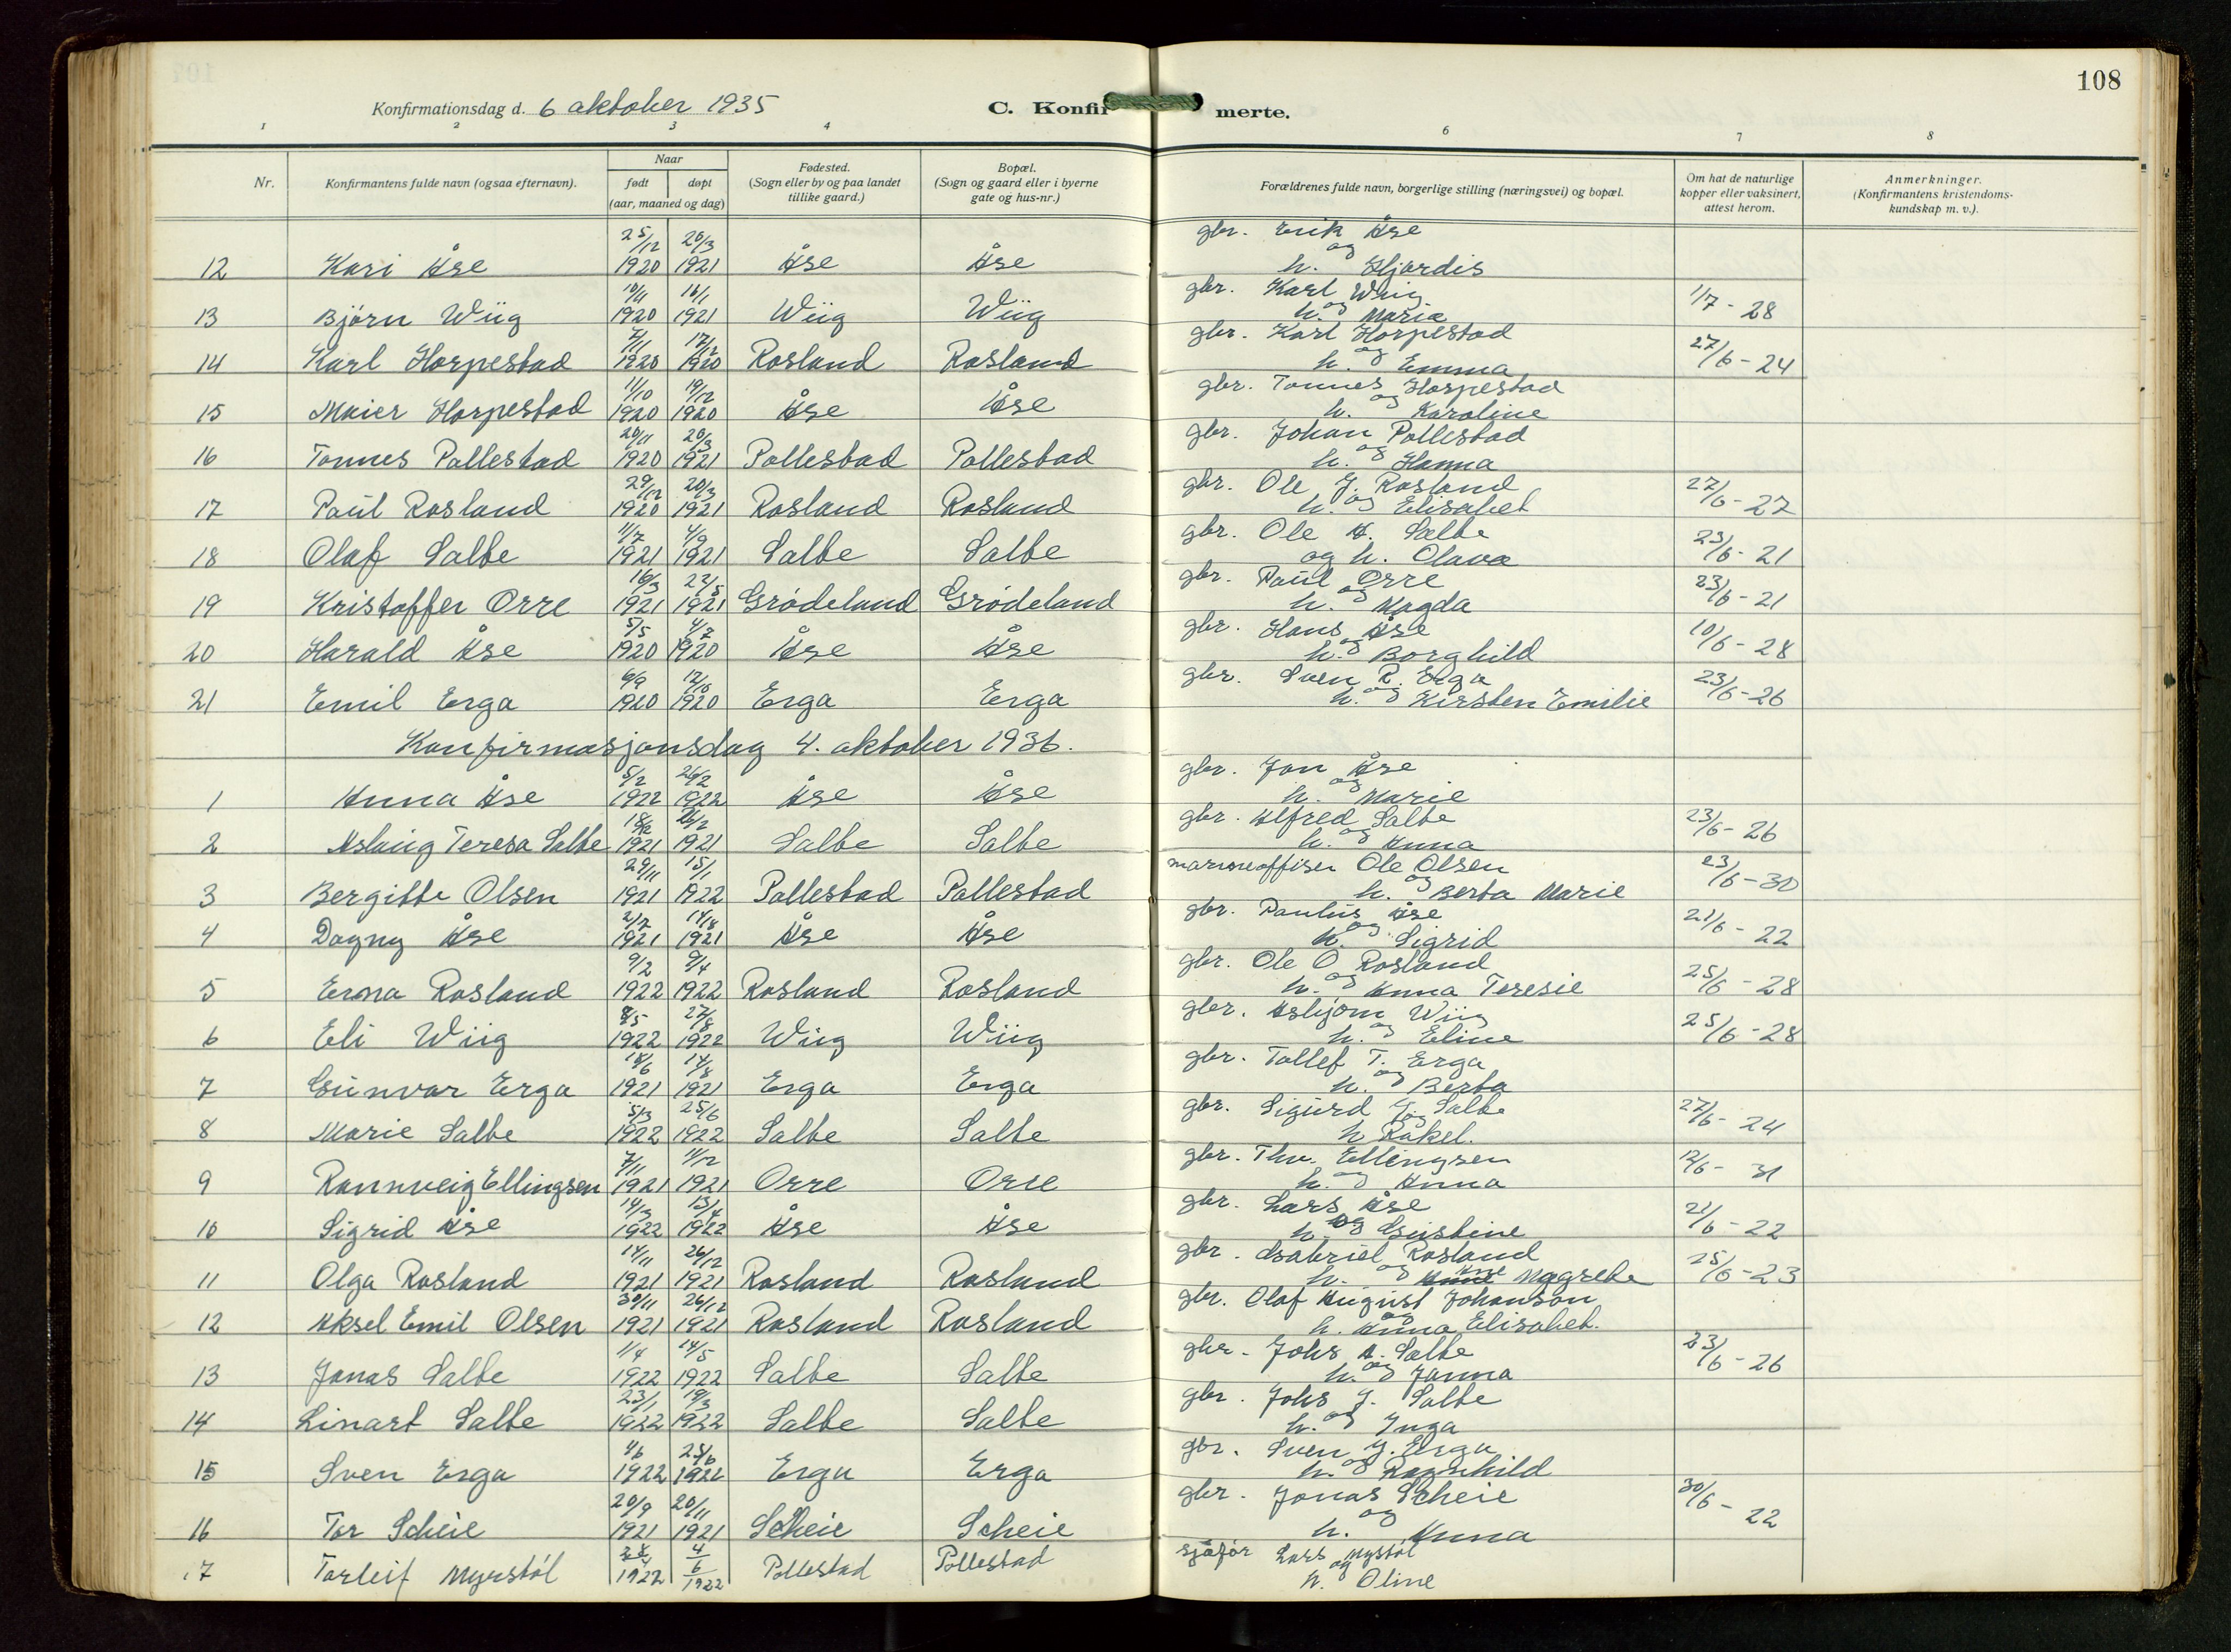 108
Konfirmationsdag d. 6 oktober 1935
C. Konfirmerte.
1 2 3 4 6 7 8
Nr. Konfirmantens fulde navn (ogsaa efternavn). Naar født døpt (aar, maaned og dag) Fødested. (Sogn eller by og paa landet tillike gaard.) Bopæl. (Sogn og gaard eller i byerne gate og hus-nr.) Forældrenes fulde navn, borgerlige stilling (næringsvei) og bopæl. Om hat de naturlige kopper eller vaksinert, attest herom. Anmerkninger. (Konfirmantens kristendoms-kundskap m. v.).
12 Kari Åse 25/12 1920 20/3 1921 Åse Åse gbr. Erik Åse og h. Hjørdis
13 Bjørn Wiig 10/11 1920 16/1 1921 Wiig Wiig gbr. Karl Wiig og h. Maria 1/7 - 28
14 Karl Horpestad 7/11 1920 12/12 1920 Rosland Rosland gbr. Karl Horpestad og h. Emma 27/6 - 24
15 Meier Horpestad 11/10 1920 19/12 1920 Åse Åse gbr. Tønnes Horpestad og h. Karoline
16 Tønnes Pollestad 20/11 1920 20/3 1921 Pollestad Pollestad gbr. Johan Pollestad og h. Hanna
17 Paul Rosland 29/12 1920 20/3 1921 Rosland Rosland gbr. Ole J. Rosland og h. Elisabet 27/6 - 27
18 Olaf Salte 11/7 1921 4/9 1921 Salte Salte gbr. Ole A. Salte og h. Olava 23/6 - 21
19 Kristoffer Orre 16/3 1921 22/5 1921 Grødeland Grødeland gbr. Paul Orre og h. Magda 23/6 - 21
20 Harald Åse 5/5 1920 4/7 1920 Åse Åse gbr. Hans Åse og h. Borghild 10/6 - 28
21 Emil Erga 9/9 1920 12/10 1920 Erga Erga gbr. Sven R. Erga og h. Kirsten Emilie 23/6 - 26
Konfirmasjonsdag 4. oktober 1936.
1 Anna Åse 5/2 1922 26/2 1922 Åse Åse gbr. Jon Åse og h. Marie
2 Aslaug Teresa Salte 1921 1921 Salte Salte gbr. Alfred Salte og h. Anna 23/6 - 26
3 Bergitte Olsen 29/11 1921 15/1 1922 Pollestad Pollestad marineoffiser Ole Olsen og h. Berta Marie 23/6 - 30
4 Dagny Åse 2/7 1921 14/8 1921 Åse Åse gbr. Paulus Åse og h. Sigrid 21/6 - 22
5 Erna Rosland 9/2 1922 9/4 1922 Rosland Rosland gbr. Ole O Rosland og h. Anna Teresie 25/6 - 28
6 Eli Wiig 8/5 1922 27/8 1922 Wiig Wiig gbr. Asbjørn Wiig og h. Eline 25/6 - 28
7 Gunvar Erga 18/6 1921 14/8 1921 Erga Erga gbr. Tollef T. Erga og h. Berta
8 Marie Salte 5/3 1922 25/6 1922 Salte Salte gbr. Sigurd J. Salte og h Rakel. 27/6 - 24
9 Rannveig Ellingsen 7/11 1921 11/12 1921 Orre Orre gbr. Thv. Ellingsen og h. Anna 12/6 - 31
10 Sigrid Åse 14/3 1922 13/4 1922 Åse Åse gbr. Lars Åse og h. Gustine 21/6 - 22
11 Olga Rosland 14/11 1921 26/12 1921 Rosland Rosland gbr. Gabriel Rosland og h. Ane Magrete 25/6 - 23
12 Aksel Emil Olsen 30/11 1921 26/12 1921 Rosland Rosland gbr. Olaf August Johanson og h. Anna Elisabet.
13 Jonas Salte 1/4 1922 14/5 1922 Salte Salte gbr. Johs A. Salte og h. Janna 23/6 - 26
14 Linart Salte 23/1 1922 19/3 1922 Salte Salte gbr. Johs J. Salte og h. Inga
15 Sven Erga 4/6 1922 25/6 1922 Erga Erga gbr. Sven J. Erga og h. Ragnhild
16 Tor Scheie 20/9 1921 20/11 1921 Scheie Scheie gbr. Jonas Scheie og h. Anna 30/6 - 22
17 Torleif Myrstøl 1922 4/6 1922 Pollestad Pollestad sjåfør Lars Myrstøl og h. Oline